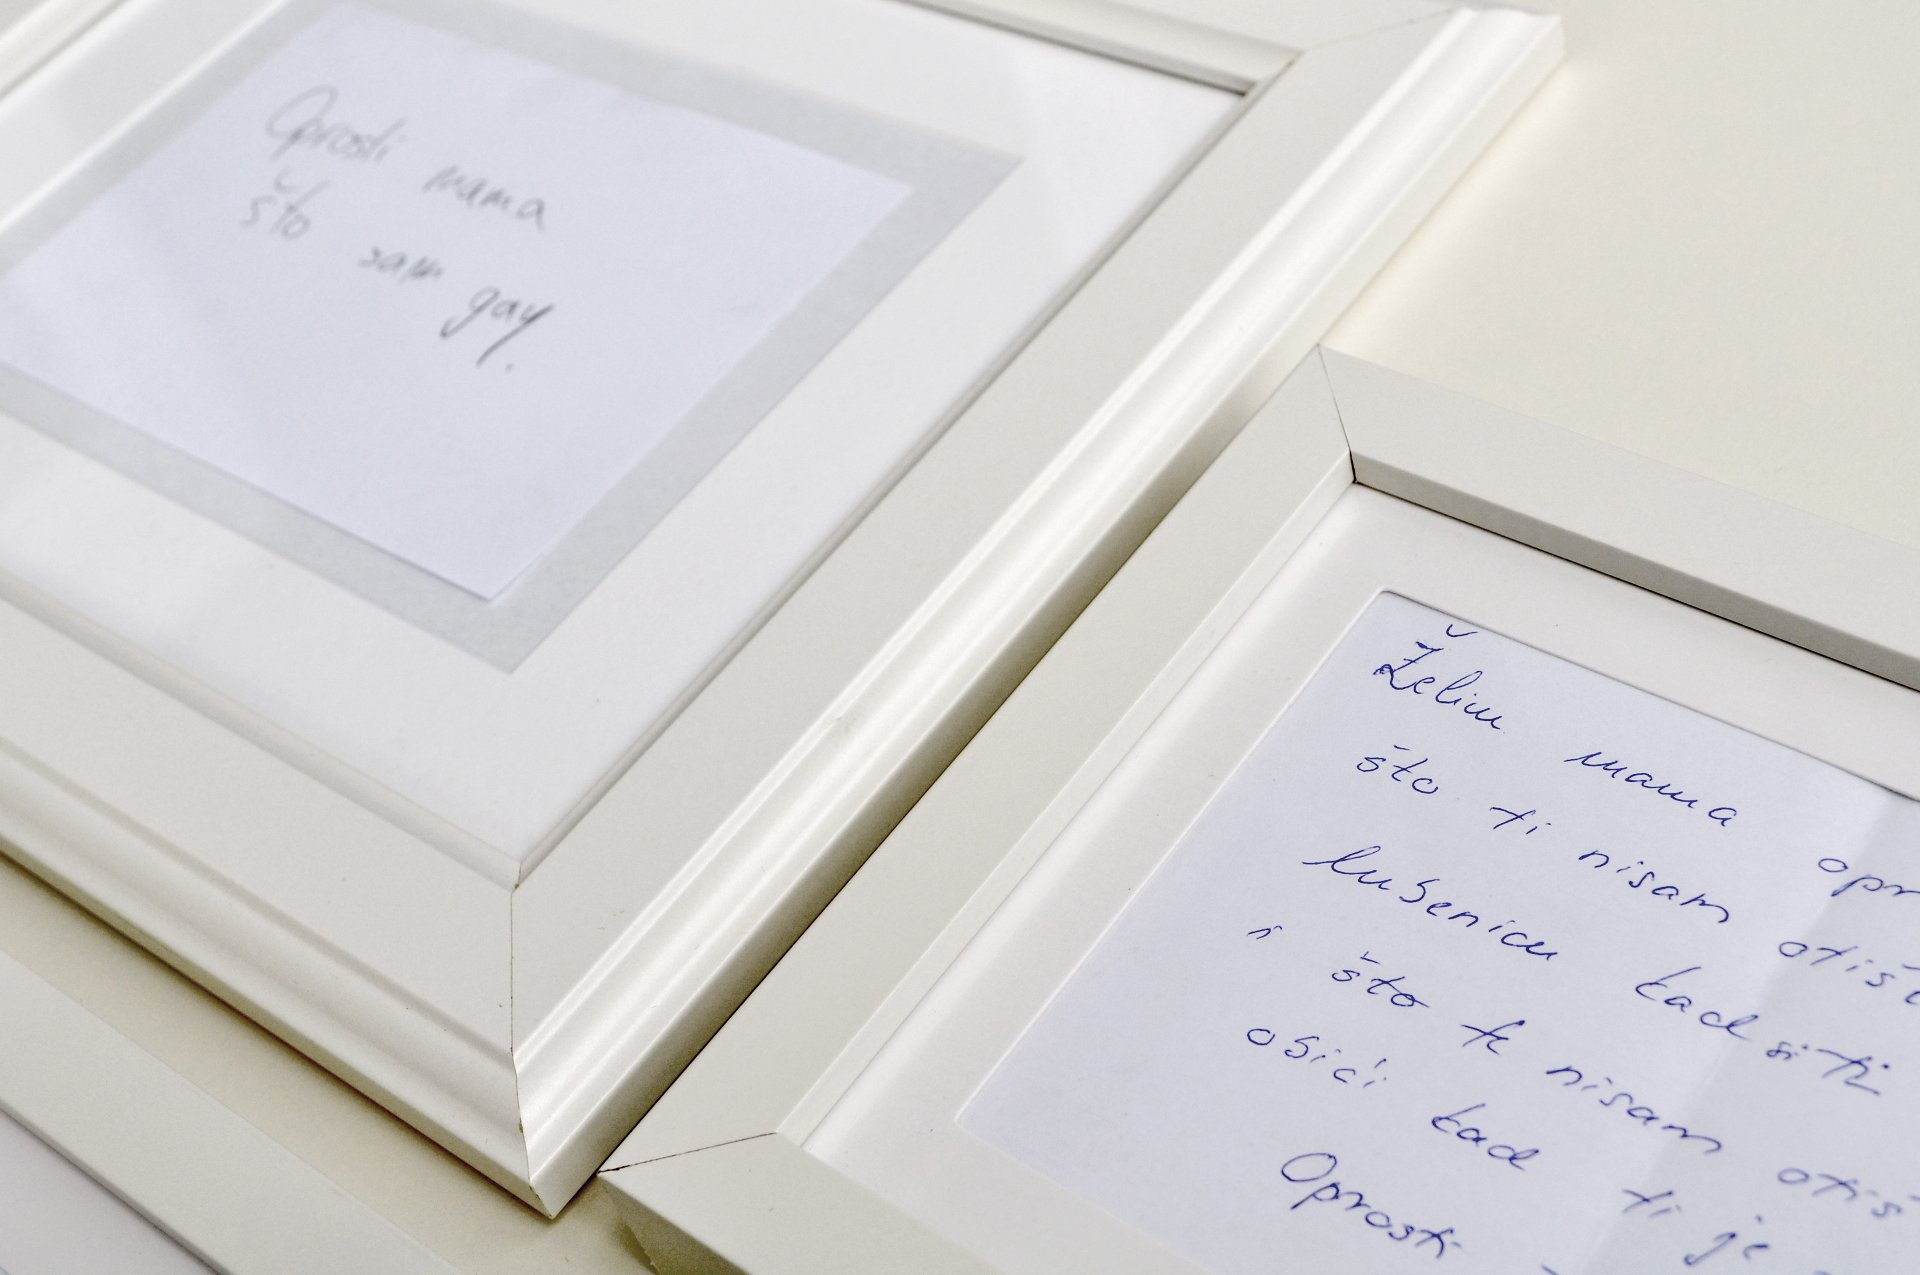 Oprosti mama
što sam gay.
Želim mama
što ti nisam
lubenicu kad si ti
i što te nisam
obići kad ti je
Oprosti